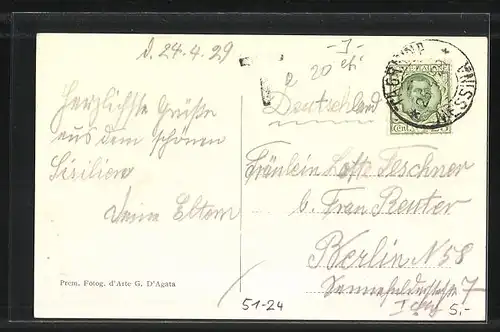 d. 24.4.29
- I -
a 20 cti
Herzlichste Grüße
aus dem schönen
Sizilien
Deine Eltern
Deutschland
TAORMINA
MESSINA
Cent. 25
Fräulein Lotte Teschner
b. Frau Reuter
Berlin N 58
7
I
Prem. Fotog. d'Arte G. D'Agata
51-24
5,-